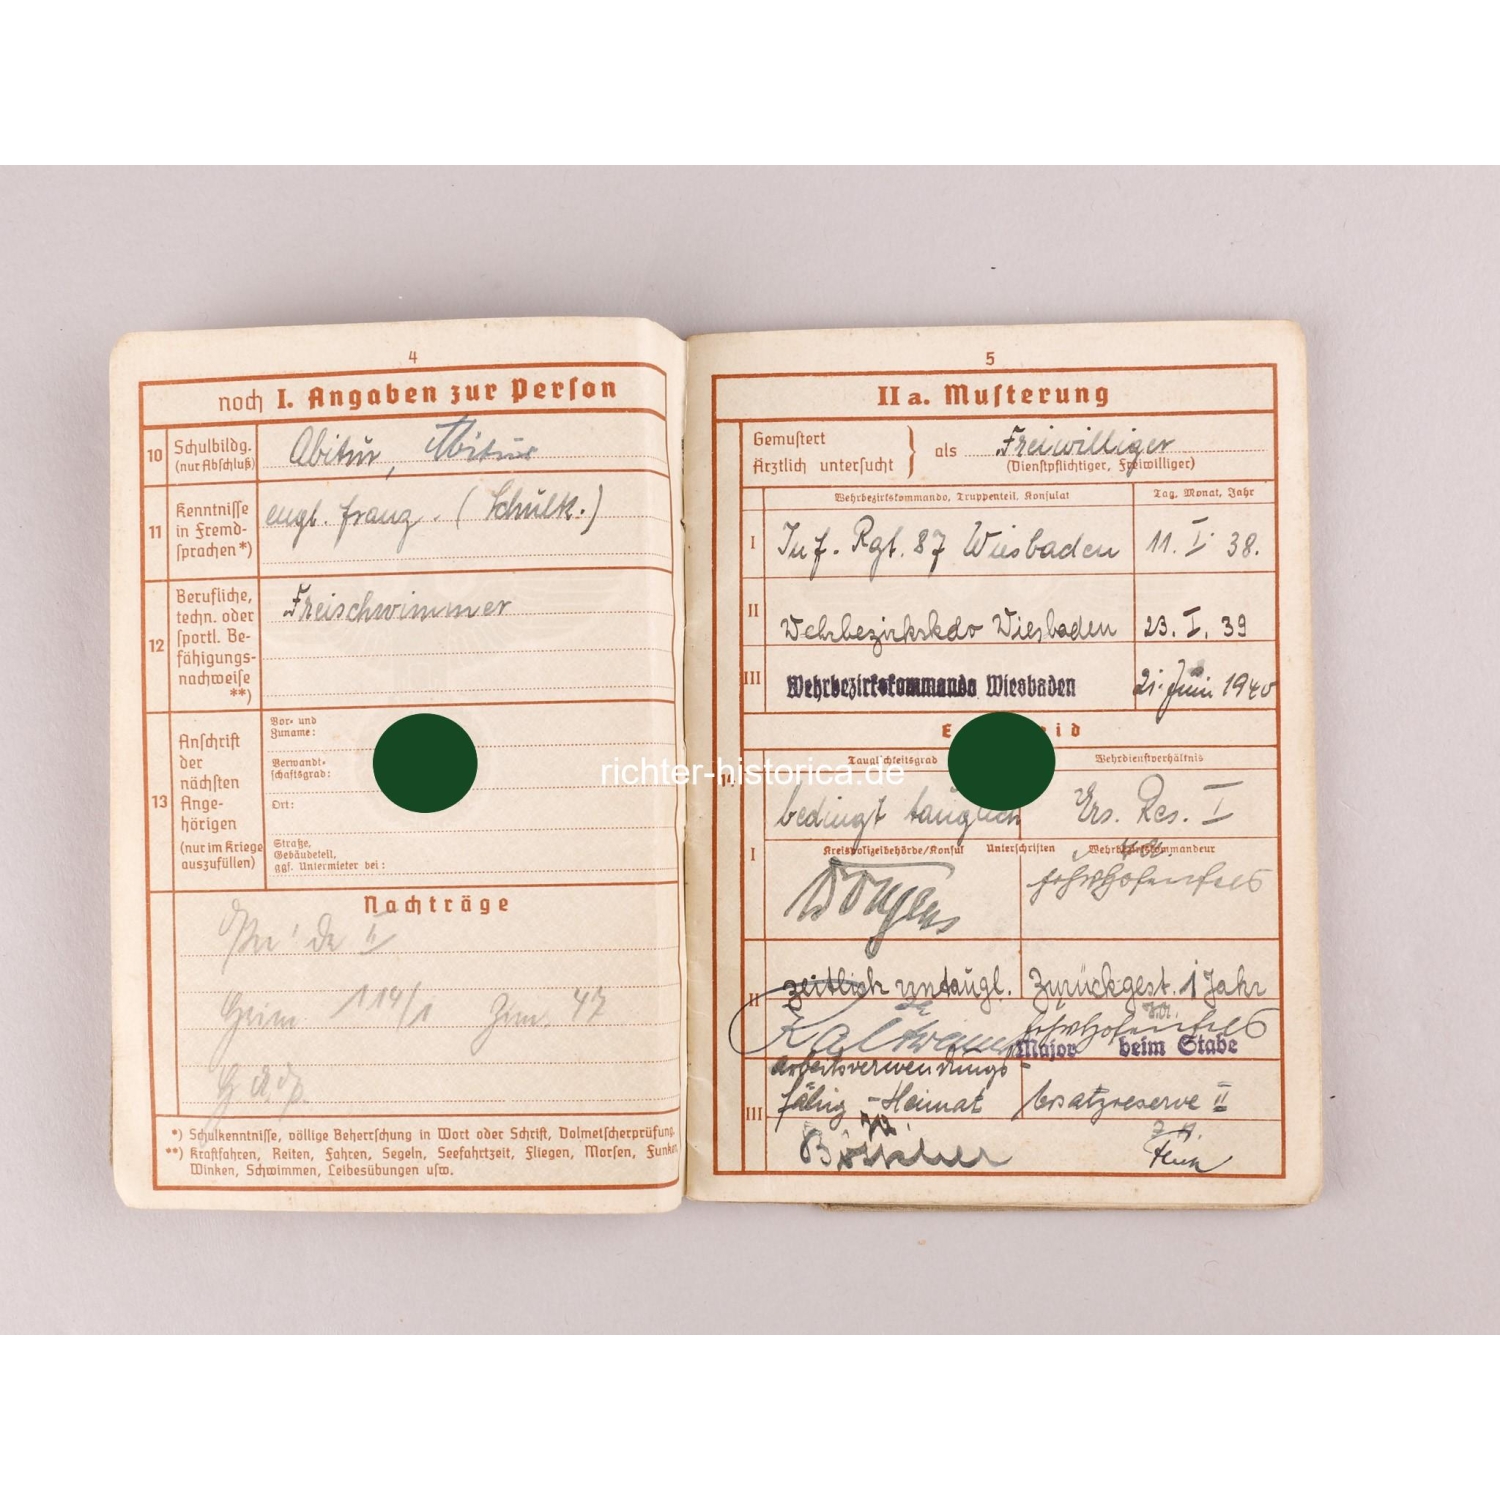 4
noch I. Angaben zur Perſon
10 Schulbildg. (nur Abſchluß)
Abitur, Abitur
11 Kenntniſſe in Fremd-ſprachen *)
engl. franz. (Schulk.)
12 Berufliche, techn. oder ſportl. Be-fähigungs-nachweiſe **)
Freischwimmer
13 Anſchrift der nächſten Ange-hörigen (nur im Kriege auszufüllen)
Vor- und Zuname:
Verwandt-ſchaftsgrad:
Ort:
Straße, Gebäudeteil, ggf. Untermieter bei:
Nachträge
II
Heim 114/1 Zim. 47
*) Schulkenntniſſe, völlige Beherrſchung in Wort oder Schrift, Dolmetſcherprüfung.
**) Kraftfahren, Reiten, Fahren, Segeln, Seefahrtzeit, Fliegen, Morſen, Funken
Winken, Schwimmen, Leibesübungen uſw.
5
II a. Muſterung
Gemuſtert
Ärztlich unterſucht
als Freiwilliger
(Dienſtpflichtiger, Freiwilliger)
Wehrbezirkskommando, Truppenteil, Konſulat
Tag, Monat, Jahr
I Inf. Rgt. 87 Wiesbaden 11. I. 38.
II Wehrbezirkskdo Wiesbaden 23. I. 39
III Wehrbezirkskommando Wiesbaden 21. Juni 1940
E id
Tauglichkeitsgrad Wehrdienſtverhältnis
richter-historica.de
bedingt tauglich Ers. Res. I
I Kreispolizeibehörde/Konſul Unterſchriften Wehrbezirkskommandeur
II zeitlich untaugl. Zurückgest. 1 Jahr
Major beim Stabe
arbeitsverwendungs-
III fähig - Heimat Ersatzreserve II